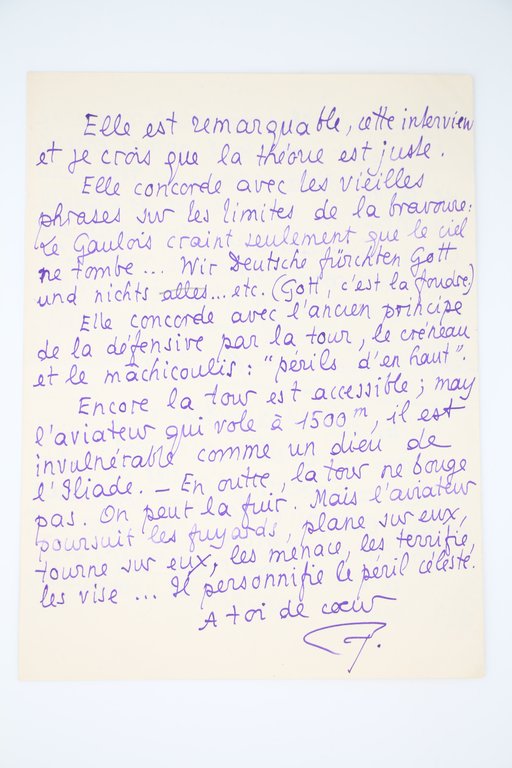 Elle est remarquable, cette interview
et je crois que la théorie est juste.
Elle concorde avec les vieilles
phrases sur les limites de la bravoure :
Le Gaulois craint seulement que le ciel
ne tombe ... Wir Deutsche fürchten Gott
und nichts alles... etc. (Gott, c'est la foudre)
Elle concorde avec l'ancien principe
de la défensive par la tour, le créneau
et le mâchicoulis : "périls d'en haut".
Encore la tour est accessible ; may
l'aviateur qui vole à 1500m, il est
invulnérable comme un dieu de
l'Iliade. — En outre, la tour ne bouge
pas. On peut la fuir. Mais l'aviateur
poursuit les fuyards, plane sur eux,
tourne sur eux, les menace, les terrifie,
les vise ... Il personnifie le péril céleste.
A toi de cœur